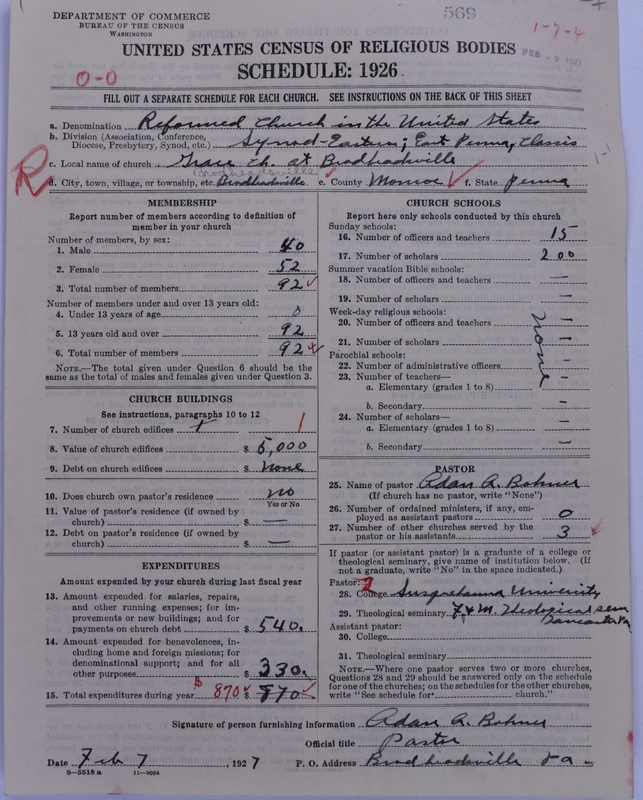 DEPARTMENT OF COMMERCE
BUREAU OF THE CENSUS
WASHINGTON
569
1-7-4
FEB - 9 1927
UNITED STATES CENSUS OF RELIGIOUS BODIES
SCHEDULE: 1926
0-0
FILL OUT A SEPARATE SCHEDULE FOR EACH CHURCH. SEE INSTRUCTIONS ON THE BACK OF THIS SHEET
a. Denomination Reformed Church in the United States
b. Division (Association, Conference, Diocese, Presbytery, Synod, etc.) Synod-Eastern; East Penna, Classis
c. Local name of church Grace Ch. at Brodheadsville
R
Brodheadsville
d. City, town, village, or township, etc. Brodheadsville e. County Monroe f. State Penna
MEMBERSHIP
Report number of members according to definition of member in your church
Number of members, by sex:
1. Male 40
2. Female 52
3. Total number of members 92
Number of members under and over 13 years old:
4. Under 13 years of age 0
5. 13 years old and over 92
6. Total number of members 92
NOTE.—The total given under Question 6 should be the same as the total of males and females given under Question 3.
CHURCH BUILDINGS
See instructions, paragraphs 10 to 12
7. Number of church edifices 1 1
8. Value of church edifices $ 5,000
9. Debt on church edifices $ None
10. Does church own pastor's residence no
Yes or No
11. Value of pastor's residence (if owned by church) $ —
12. Debt on pastor's residence (if owned by church) $ —
EXPENDITURES
Amount expended by your church during last fiscal year
13. Amount expended for salaries, repairs, and other running expenses; for improvements or new buildings; and for payments on church debt $ 540.
14. Amount expended for benevolences, including home and foreign missions; for denominational support; and for all other purposes $ 330.
15. Total expenditures during year $ 870 $ 870
CHURCH SCHOOLS
Report here only schools conducted by this church
Sunday schools:
16. Number of officers and teachers 15
17. Number of scholars 200
Summer vacation Bible schools:
18. Number of officers and teachers —
19. Number of scholars —
Week-day religious schools:
20. Number of officers and teachers —
21. Number of scholars —
none
Parochial schools:
22. Number of administrative officers —
23. Number of teachers—
a. Elementary (grades 1 to 8) —
b. Secondary —
24. Number of scholars—
a. Elementary (grades 1 to 8) —
b. Secondary —
PASTOR
25. Name of pastor Adam A. Bohner
(If church has no pastor, write "None")
26. Number of ordained ministers, if any, employed as assistant pastors 0
27. Number of other churches served by the pastor or his assistants 3
If pastor (or assistant pastor) is a graduate of a college or theological seminary, give name of institution below. (If not a graduate, write "No" in the space indicated.)
Pastor: 2
28. College Susquehanna University
29. Theological seminary F & M. Theological Sem Lancaster Pa
Assistant pastor:
30. College
31. Theological seminary
NOTE.—Where one pastor serves two or more churches, Questions 28 and 29 should be answered only on the schedule for one of the churches; on the schedules for the other churches, write "See schedule for church."
Signature of person furnishing information Adam A. Bohner
Official title Pastor
Date Feb 7, 1927 P. O. Address Brodheadsville Pa.
S-5518 a 11-9054